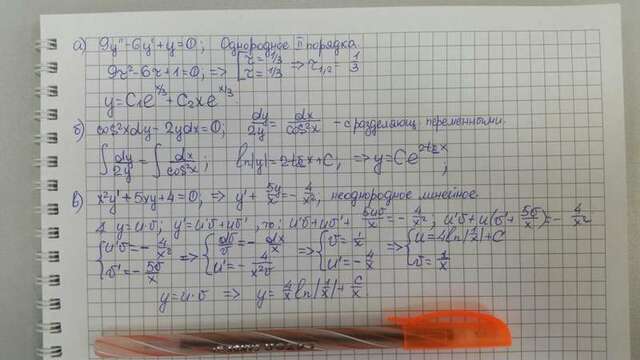 а) 9y'' - 6y' + y = 0; Однородное II порядка.
9r² - 6r + 1 = 0, => [r = 1/3 r = 1/3 => r₁,₂ = 1/3
y = C₁e^(x/3) + C₂xe^(x/3)
б) cos²xdy - 2ydx = 0, dy/2y = dx/cos²x - с разделяющ. переменными.
∫dy/2y = ∫dx/cos²x; ln|y| = 2tgx + C, => y = Ce^(2tgx);
в) x²y' + 5xy + 4 = 0; => y' + 5y/x = -4/x², неоднородное линейное.
y = u·v; y' = u'v + uv', то: u'v + uv' + 5uv/x = -4/x², u'v + u(v' + 5v/x) = -4/x²
{u'v = -4/x² v' = -5v/x => {dv/v = -dx/x u' = -4/x²v => {v = 1/x u' = -4/x => {u = 4ln|1/x| + C v = 1/x
y = u·v => y = 4/x ln|1/x| + C/x.